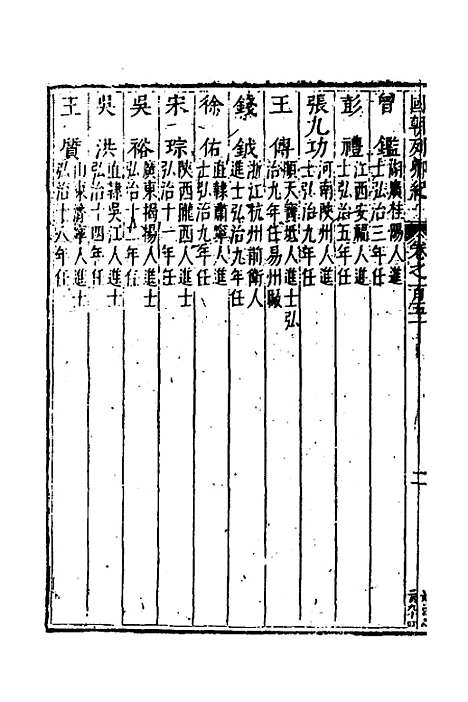 國朝列卿紀 卷之一百五十
曾鑑 湖廣桂陽人進士弘治三年任
彭禮 江西安福人進士弘治五年任
張九功 河南陝州人進士弘治九年任
王傳 順天寶坻人進士弘治九年任易州廠
錢鉞 浙江杭州前衛人進士弘治九年任
徐佑 直隸肅寧人進士弘治九年任
宋琮 陝西隴西人進士弘治十一年任
吳裕 廣東揭揚人進士弘治十二年任
吳洪 直隸吳江人進士弘治十四年任
王質 山東濟寧人進士弘治十八年任